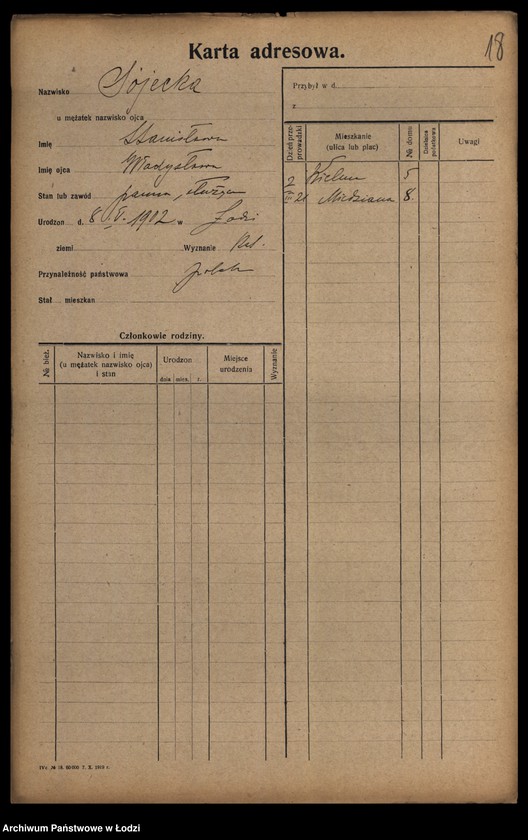 18
Karta adresowa.
Nazwisko Sójecka
u mężatek nazwisko ojca
Imię Stanisława
Imię ojca Władysława
Stan lub zawód panna, służąca
Urodzon d. 8 V. 1902 w Łodzi
ziemi Wyznanie Kat.
Przynależność państwowa polsk
Stał mieszkan
Przybył w d.
z
Dzień przeprowadzki
Mieszkanie (ulica lub plac)
№ domu
Dzielnica podatkowa
Uwagi
5
21 Miedziana 8.
Członkowie rodziny.
№ bież.
Nazwisko i imię (u mężatek nazwisko ojca) i stan
Urodzon
dnia mies. r.
Miejsce urodzenia
Wyznanie
60 000 7. X. 1919 r.
Archiwum Państwowe w Łodzi